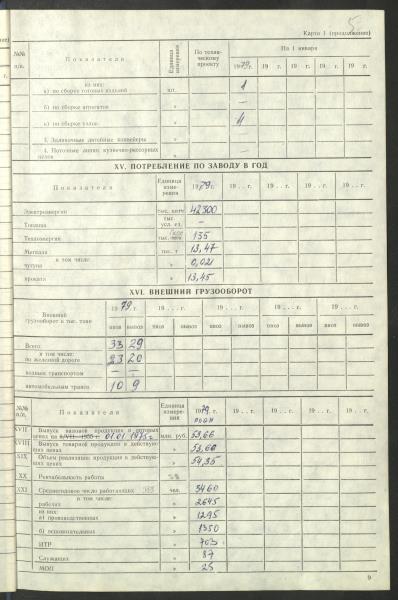 5
Карта 1 (продолжение)
№№ п/п. Показатели Единица измерения По техническому проекту На 1 января
1979 г. 19 г. 19 г. 19 г. 19 г.
из них:
а) по сборке готовых изделий шт. 1
б) по сборке агрегатов » —
в) по сборке узлов » 4
3. Заливочные литейные конвейеры »
4. Поточные линии кузнечно-рессорных цехов » —
XV. ПОТРЕБЛЕНИЕ ПО ЗАВОДУ В ГОД
Показатели Единица измерения 1979 г. 19 . . г. 19 . . г. 19 . . г. 19 . . г.
Электроэнергия тыс. квтч 42300
Топливо тыс. усл. ед. —
Теплоэнергия тыс. 135
Металла тыс. т 13,47
в том числе:
чугуна » 0,021
проката » 13,45
XVI. ВНЕШНИЙ ГРУЗООБОРОТ
Внешний грузооборот в тыс. тонн 1979 г. 19 . . . г. 19 . . . г. 19 . . . г. 19 . . . г.
ввоз вывоз ввоз вывоз ввоз вывоз ввоз вывоз ввоз вывоз
Всего: 33 29
в том числе:
по железной дороге 23 20
водным транспортом — —
автомобильным трансп. 10 9
№№ п/п. Показатели Единица измерения 1979 г. план 19 . . г. 19 . . г. 19 . . г. 19 . . г.
XVII Выпуск валовой продукции в оптовых ценах на 01.01 1975 г. млн. руб. 53,66
XVIII Выпуск товарной продукции в действующих ценах » 53,60
XIX Объем реализации продукции в действующих ценах » 54,35
XX Рентабельность работы
XXI Среднегодовое число работающих чел. 3460
в том числе:
рабочих » 2645
из них:
а) производственных » 1295
б) вспомогательных » 1350
ИТР » 703
Служащих » 87
МОП » 25
9